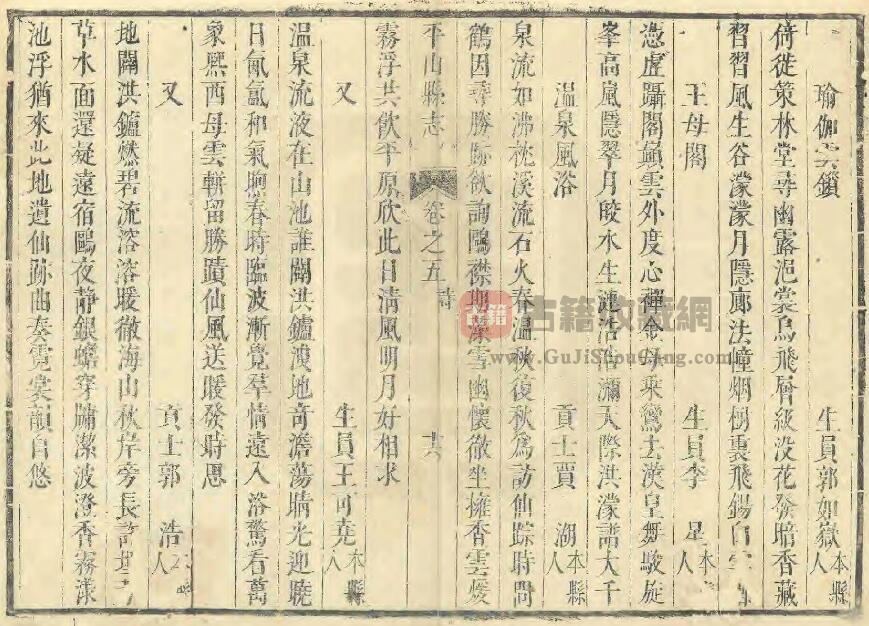 瑜伽雲鎖 生員郭如嶽本縣人
倚徙策林堂尋幽露浥裳鳥飛層級没花發暗香藏
習習風生谷濛濛月隱廊法幢烟樹裏飛錫自
王母閣 生員李 本縣人
憑虛躡閣鎖雲外度心禪金母乘鸞去漢皇舞駿旋
峯高嵐隱翠月皎水生漣浩浩瀰天際洪濛話大千
温泉風浴 貢士賈 湖本縣人
泉流如沸枕溪流石火春温秋復秋為訪仙踪時問
鶴因尋勝跡欲詢鷗襟地潔雪幽懷徹坐擁香雲煖
平山縣志 卷之五 詩 十六
霧浮共飲平原欣此日淸風明月好相求
又 生員王可堯本縣人
温泉流液在山池誰闢洪鑪漠地奇澹蕩晴光迎曉
日氤氲和氣煦春時臨波漸覺羣情遠入浴驚看萬
象熙西母雲軿留勝蹟仙風送暖發時思
又 貢士郭 浩本縣人
地闢洪鑪燃碧流溶溶暖徹海山秋岸旁長
草水面還凝遠宿鷗夜靜銀蟾穿牖潔波澄香霧漾
池浮猶來此地遺仙跡曲奏霓裳韻自悠
古籍收藏網
www.GuJiShouCang.com
古籍